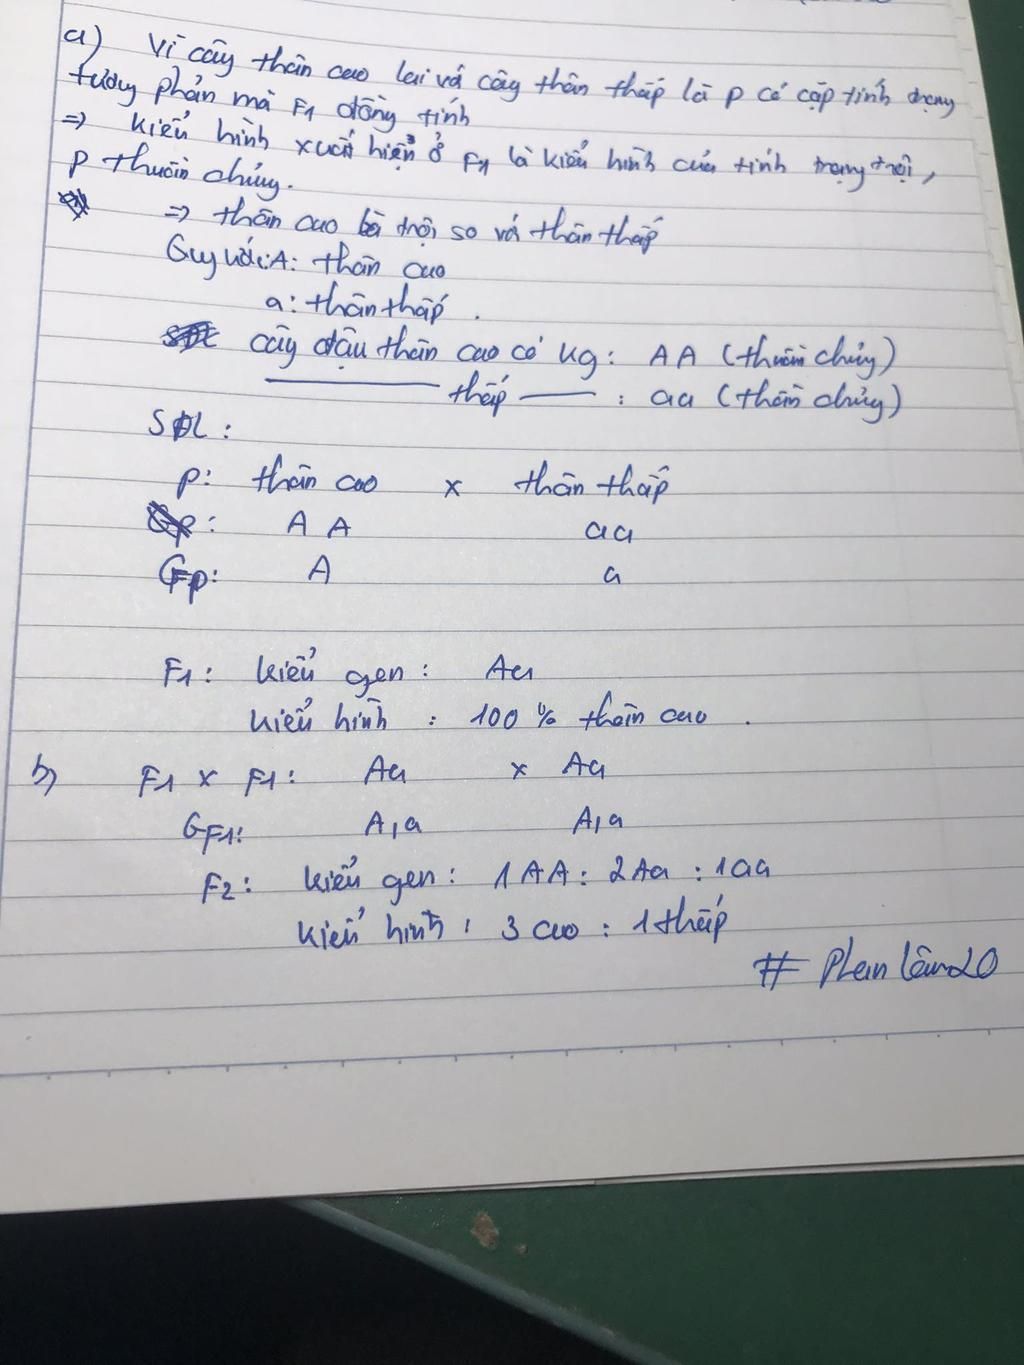 a) Vì cây thân cao lai với cây thân thấp là P có cặp tính trạng
tương phản mà F1 đồng tính
=> kiểu hình xuất hiện ở F1 là kiểu hình của tính trạng trội,
P thuần chủng.
=> thân cao là trội so với thân thấp
Quy ước: A: thân cao
a: thân thấp.
cây đậu thân cao có kg: AA (thuần chủng)
thấp : aa (thần chủng)
SĐL:
P: thân cao x thân thấp
: AA aa
Gp: A a
F1: kiểu gen: Aa
kiểu hình: 100% thân cao.
b) F1 x F1: Aa x Aa
GF1: A, a A, a
F2: kiểu gen: 1AA: 2Aa: 1aa
kiểu hình: 3 cao: 1 thấp